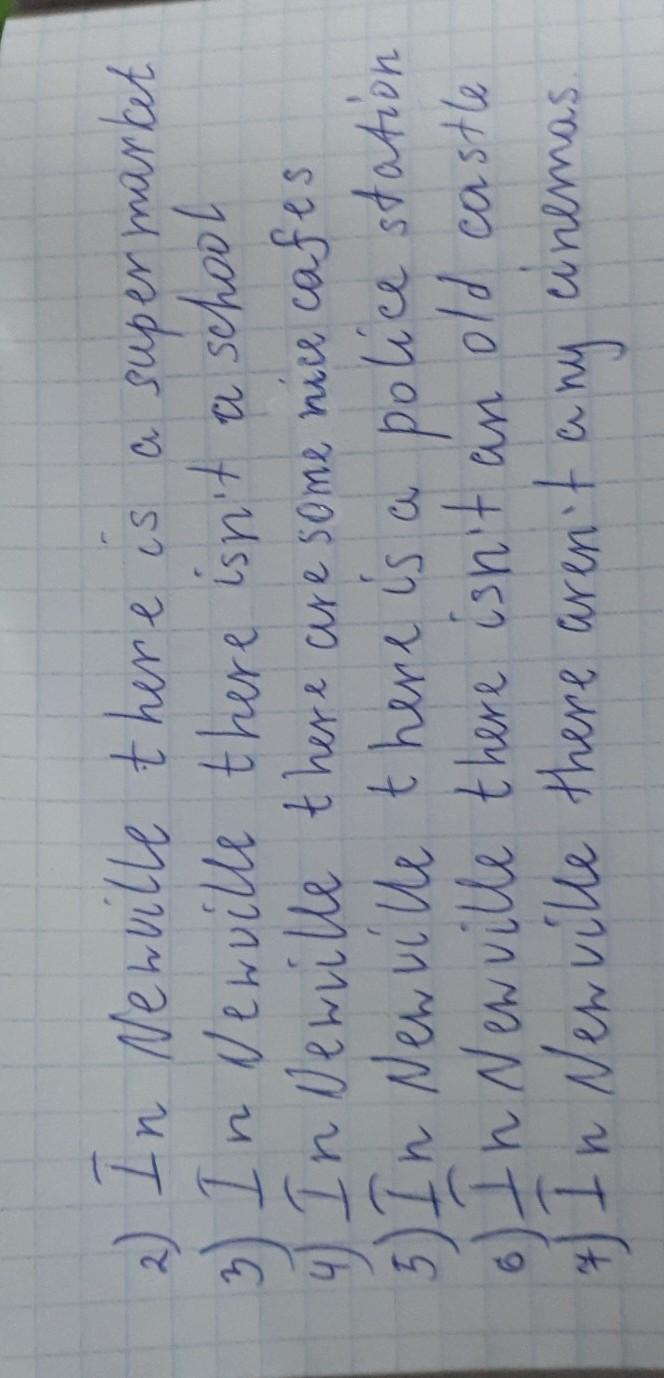 2) In Newville there is a supermarket
3) In Newville there isn't a school
4) In Newville there are some nice cafes
5) In Newville there is a police station
6) In Newville there isn't an old castle
7) In Newville there aren't any cinemas.